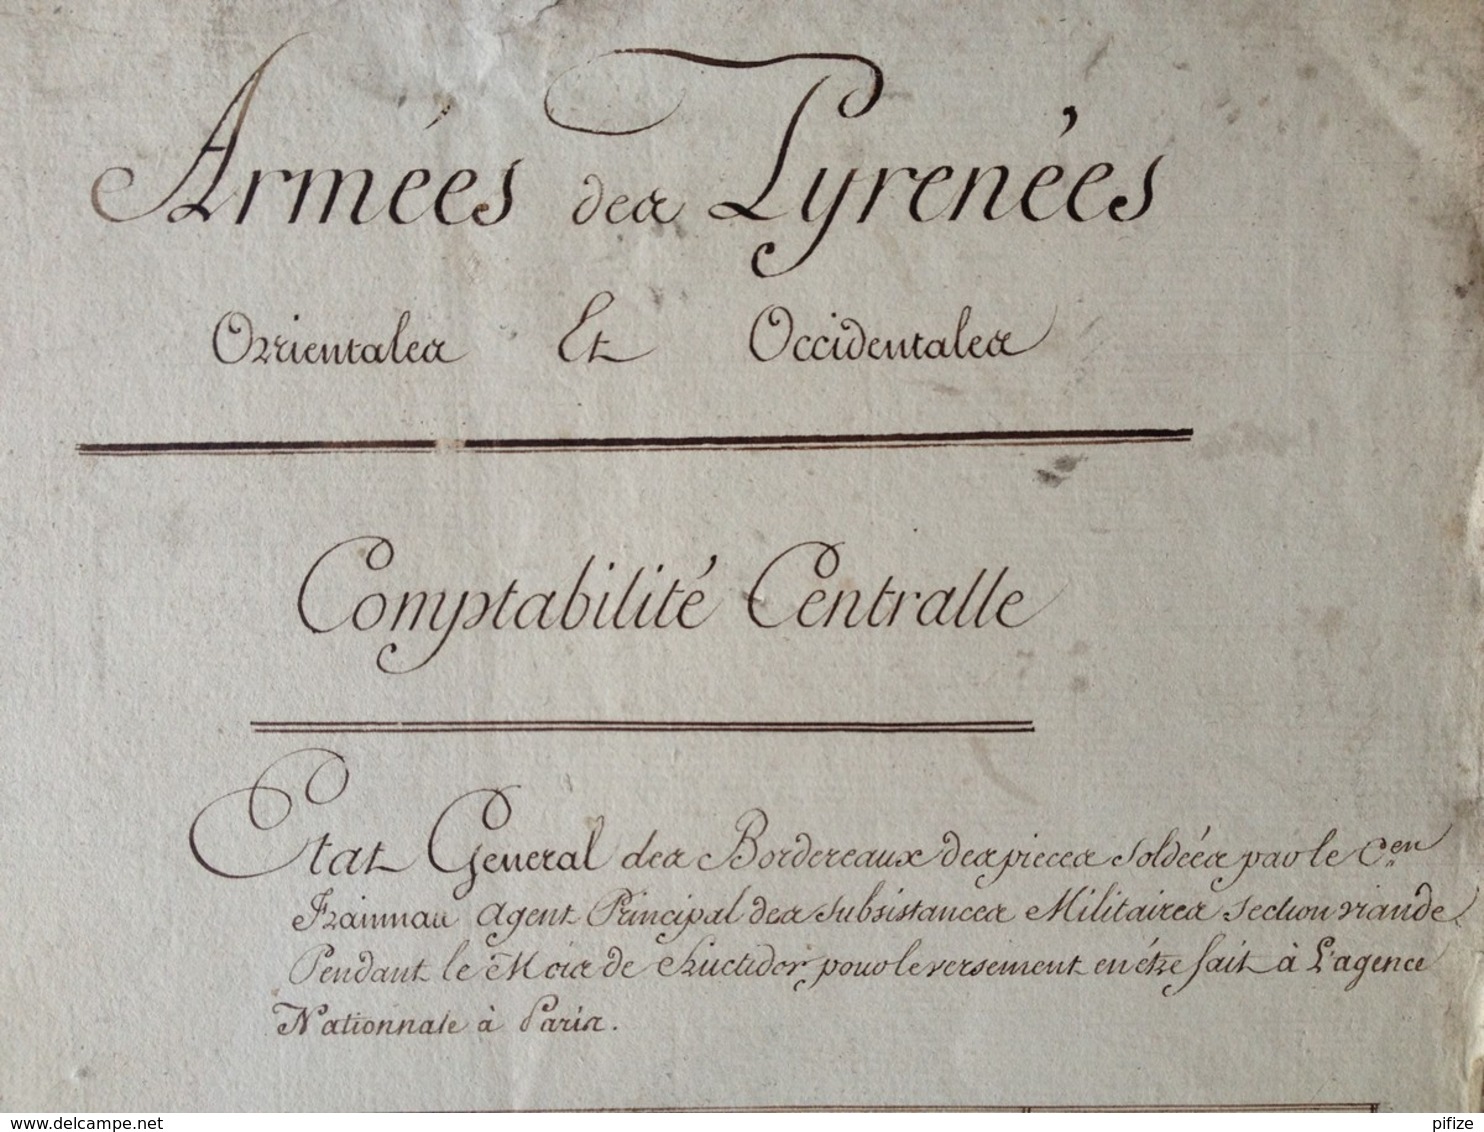 Armées des Pyrenées
Orrientales Et Occidentales
Comptabilité Centralle
Etat General des Bordereaux des pieces soldéés par le C.en
agent Principal des subsistances Militaires section viande
Pendant le Mois de fructidor pour le versement en être fait à L'agence
Nationnale à Paris.
www.delcampe.net
pifize